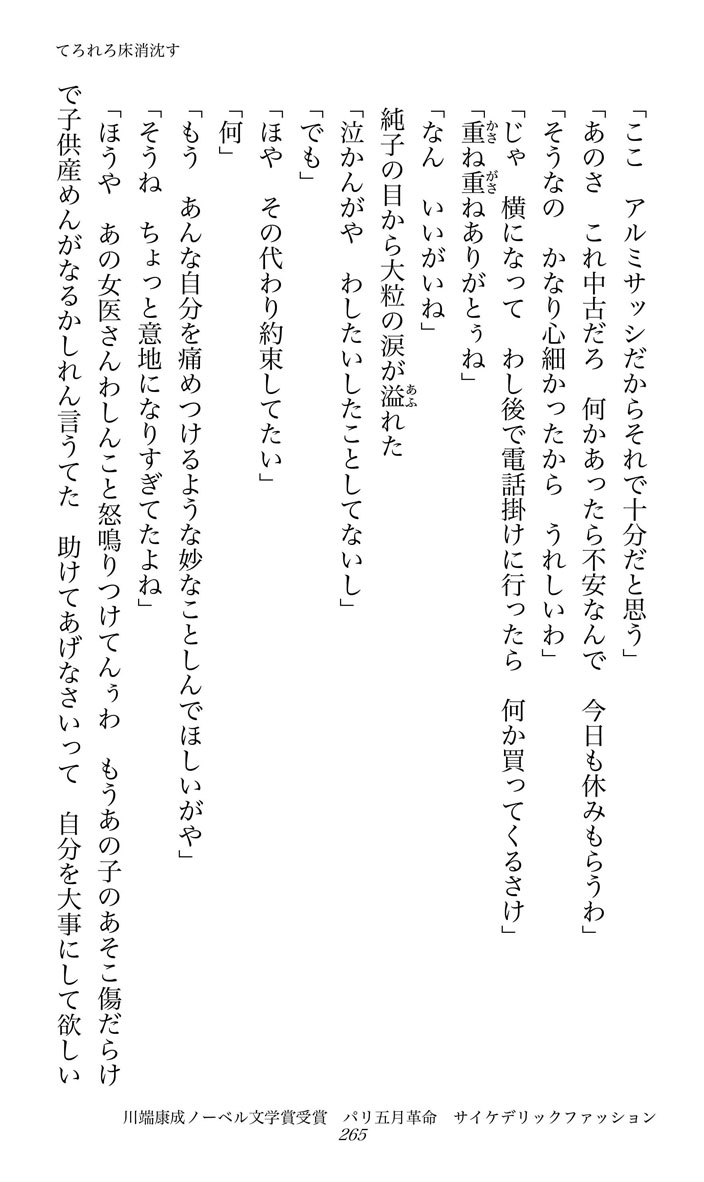 てろれろ床消沈す
「ここ　アルミサッシだからそれで十分だと思う」
「あのさ　これ中古だろ　何かあったら不安なんで　今日も休みもらうわ」
「そうなの　かなり心細かったから　うれしいわ」
「じゃ　横になって　わし後で電話掛けに行ったら　何か買ってくるさけ」
「重ね重ねありがとぅね」
「なん　いいがいね」
純子の目から大粒の涙が溢れた
「泣かんがや　わしたいしたことしてないし」
「でも」
「ほや　その代わり約束してたい」
「何」
「もう　あんな自分を痛めつけるような妙なことしんでほしいがや」
「そうね　ちょっと意地になりすぎてたよね」
「ほうや　あの女医さんわしんこと怒鳴りつけてんぅわ　もうあの子のあそこ傷だらけ
で子供産めんがなるかしれん言うてた　助けてあげなさいって　自分を大事にして欲しい
川端康成ノーベル文学賞受賞　パリ五月革命　サイケデリックファッション
265